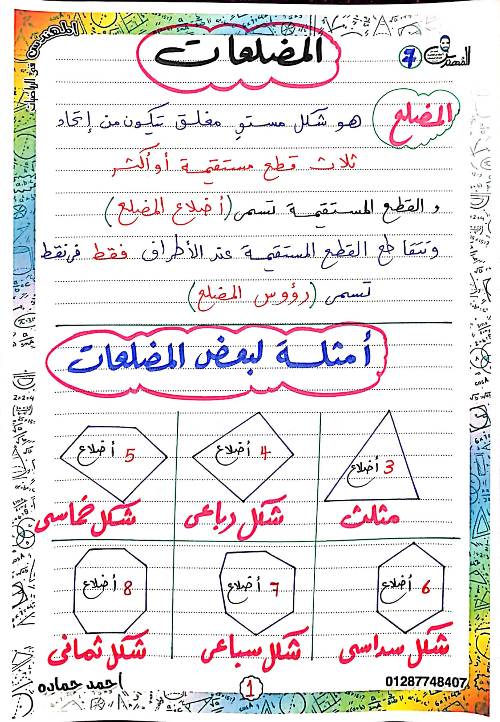 المهندس فى الرياضيات
المضلعات
4
المضلع هو شكل مستوٍ مغلق تتكون من إتحاد
ثلاث قطع مستقيمة أو أكثر
و القطع المستقيمة تسمى (أضلاع المضلع)
وتتقاطع القطع المستقيمة عند الأطراف فقط فى نقط
تسمى (رؤوس المضلع)
أمثلة لبعض المضلعات
3 أضلاع
مثلث
4 أضلاع
شكل رباعى
5 أضلاع
شكل خماسى
6 أضلاع
شكل سداسى
7 أضلاع
شكل سباعى
8 أضلاع
شكل ثمانى
01287748407
1
احمد حماده